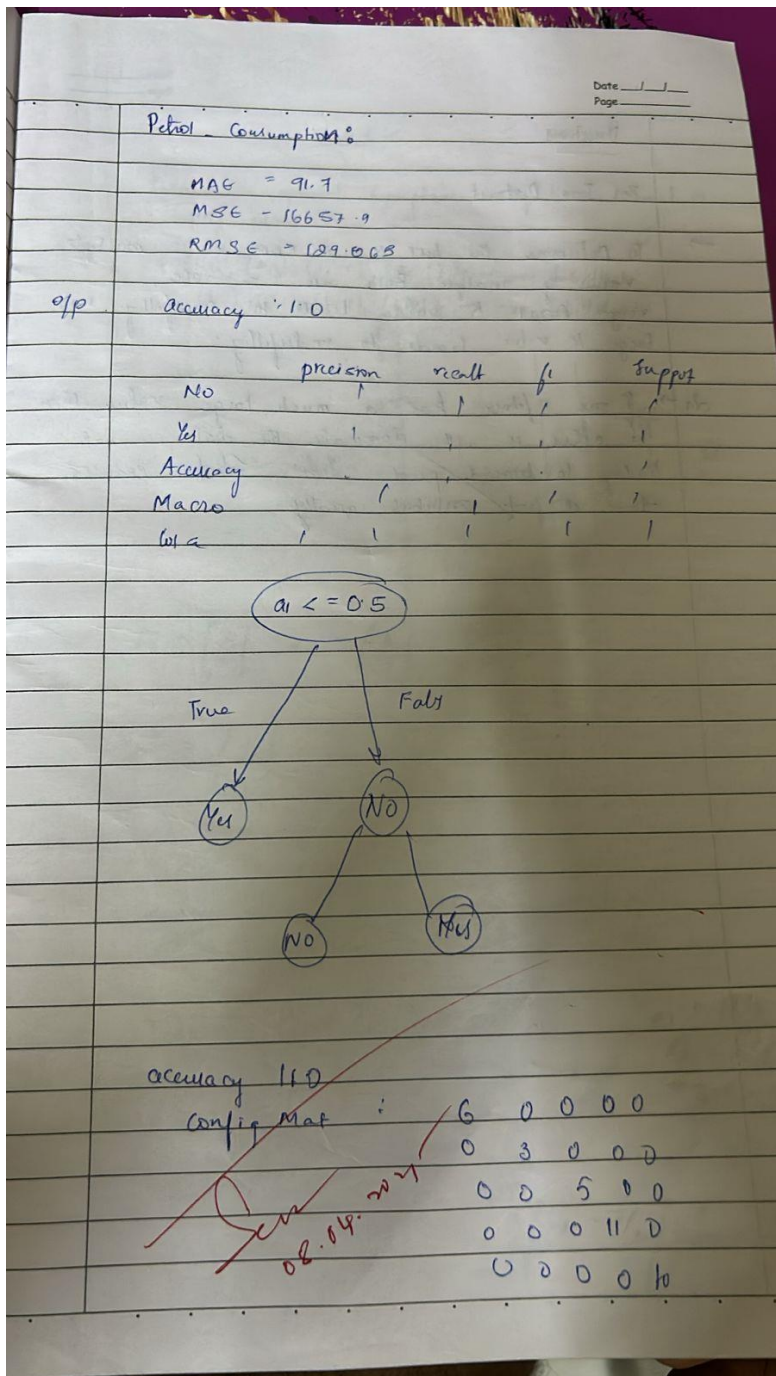 Date __/__/__
Page ____
Petrol - Consumption:
MAE = 91.7
MSE - 16657.9
RMSE = 129.063
o/p accuracy : 1.0
precision recall f1 support
No 1 1 1 1
Yes 1 1 1 1
Accuracy 1
Macro 1 1 1 1
1 1 1 1 1
a1 <= 0.5
True False
Yes No
No Yes
accuracy 1.0
Config Mat : 6 0 0 0 0
0 3 0 0 0
0 0 5 0 0
0 0 0 11 0
0 0 0 0 10
08.04.2021